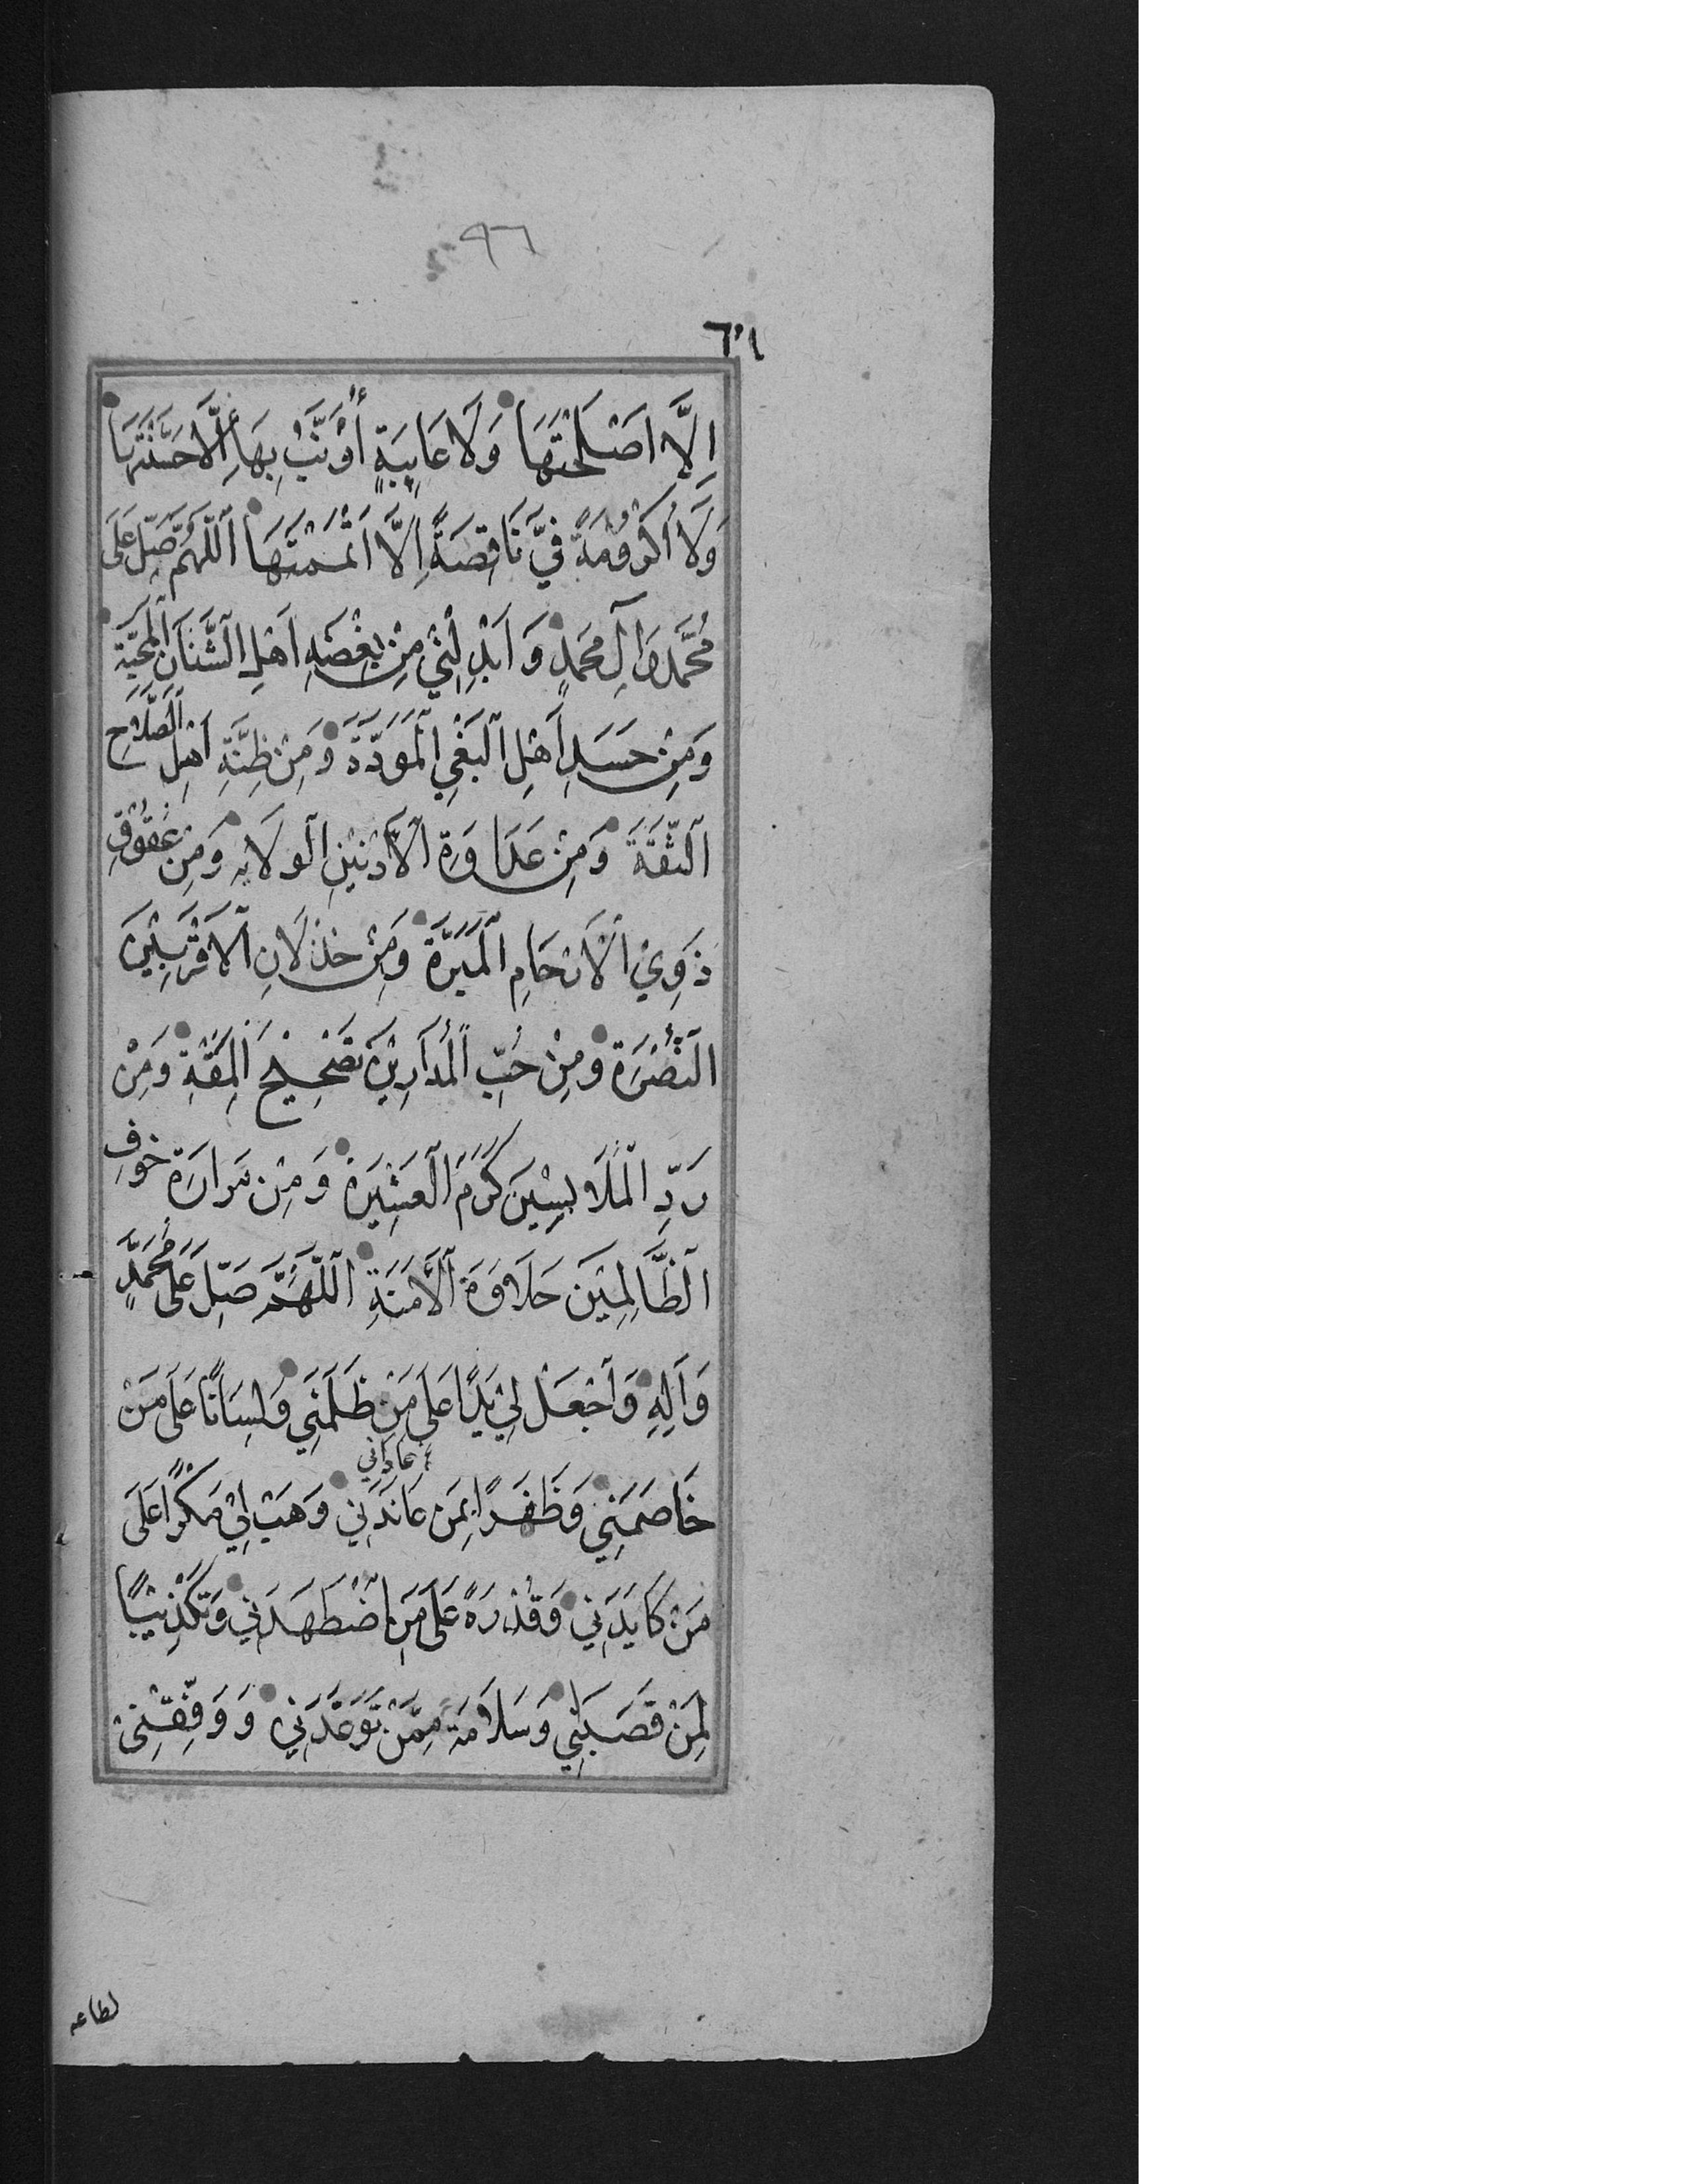 ٩٦
اِلَّا اَصْلَحْتَهَا وَلَا عَايِبَةٍ أُؤَنَّبُ بِهَا اِلَّا حَسَّنْتَهَا
وَلَا اُكْرُوْمَةً فِيَّ نَاقِصَةً اِلَّا اَتْمَمْتَهَا اَللّٰهُمَّ صَلِّ عَلَى
مُحَمَّدٍ وَآلِ مُحَمَّدٍ وَ اَبْدِلْنِيْ مِنْ بِغْضَةِ اَهْلِ الشَّنَآنِ الْمَحَبَّةَ
وَمِنْ حَسَدِ اَهْلِ الْبَغْيِ الْمَوَدَّةَ وَمِنْ ظِنَّةِ اَهْلِ الصَّلَاحِ
الثِّقَةَ وَمِنْ عَدَاوَةِ الْاَدْنَيْنِ الْوَلَايَةَ وَمِنْ عُقُوْقِ
ذَوِيْ الْاَرْحَامِ الْمَبَرَّةَ وَمِنْ خِذْلَانِ الْاَقْرَبِيْنَ
النُّصْرَةَ وَمِنْ حُبِّ الْمُدَارِيْنَ تَصْحِيْحَ الْمِقَةِ وَمِنْ
رَدِّ الْمُلَابِسِيْنَ كَرَمَ الْعَشِيْرَةِ وَمِنْ مَرَارَةِ خَوْفِ
الظَّالِمِيْنَ حَلَاوَةَ الْاَمَنَةِ اَللّٰهُمَّ صَلِّ عَلَى مُحَمَّدٍ
وَآلِهِ وَاَجْعَلْ لِيْ يَدًا عَلَى مَنْ ظَلَمَنِي وَلِسَانًا عَلَى مَنْ
عاداني
خَاصَمَنِيْ وَظَفَرًا بِمَنْ عَانَدَنِي وَهَبْ لِيْ مَكْرًا عَلَى
مَنْ كَايَدَنِي وَقُدْرَةً عَلَى مَنِ اضْطَهَدَنِي وَتَكْذِيْبًا
لِمَنْ قَصَبَنِي وَسَلَامَةً مِمَّنْ تَوَعَّدَنِي وَوَفِّقْنِيْ
لطاعه